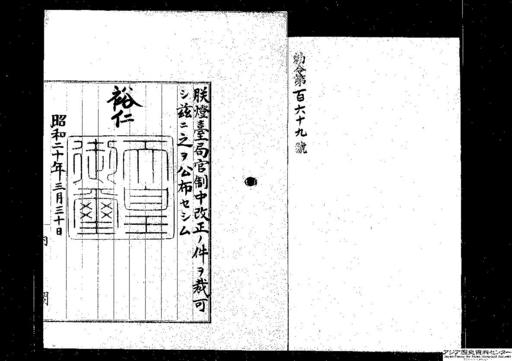 勅令第百六十九號
朕燈臺局官制中改正ノ件ヲ裁可
シ玆ニ之ヲ公布セシム
裕仁
天皇御璽
昭和二十年三月三十日
アジア歴史資料センター